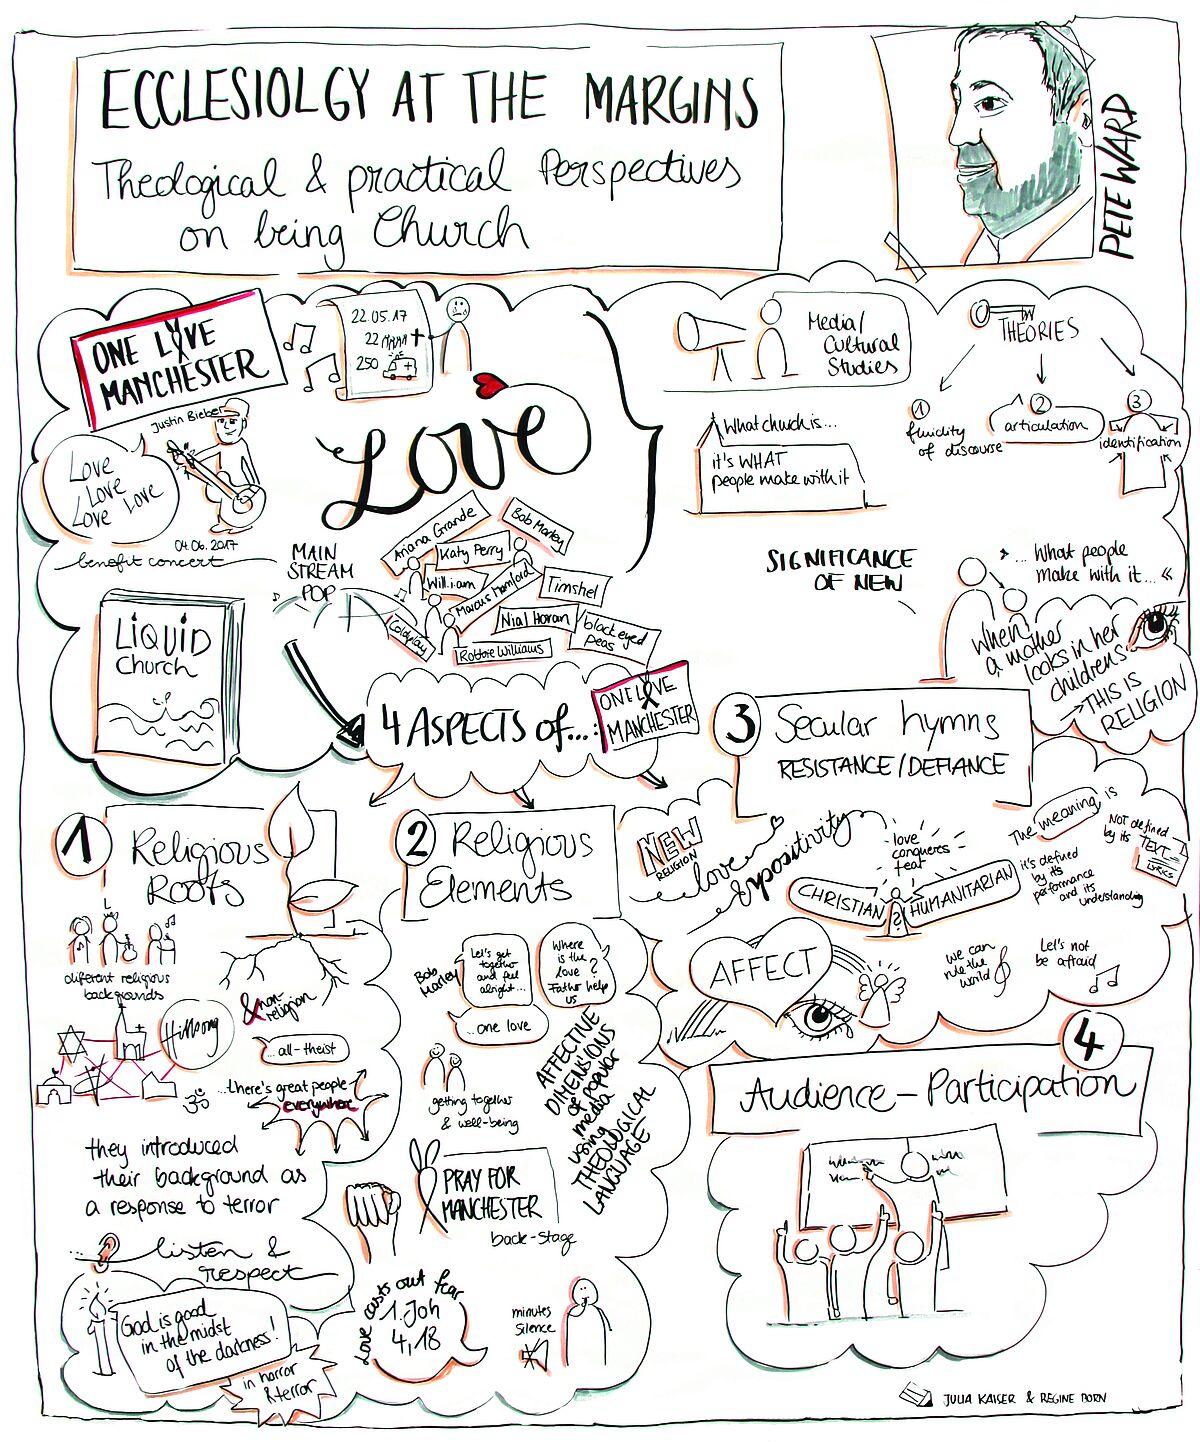 ECCLESIOLGY AT THE MARGINS
Theological & practical Perspectives
on being Church
PETE WARD
ONE LOVE
MANCHESTER
22.05.17
22
250
Justin Bieber
Love
Love
Love Love
04.06.2017
benefit concert
LOVE
MAIN
STREAM
POP
Ariana Grande
Bob Marley
Katy Perry
Will.i.am
Marcus Mumford
Timshel
Coldplay
Nial Horan
black eyed
peas
Robbie Williams
LIQUID
Church
Media/
Cultural
Studies
THEORIES
1
fluidity
of discourse
2
articulation
3
identification
What church is...
it's WHAT
people make with it
SIGNIFICANCE
OF NEW
» ... What people
make with it... «
When
a mother
looks in her
childrens
→ THIS IS
RELIGION
4 ASPECTS of...:
ONE LOVE
MANCHESTER
1
Religious
Roots
different religious
backgrounds
& non-
religion
Hillsong
...all-theist
ॐ
...there's great people
everywhere
they introduced
their background as
a response to terror
listen &
respect
God is good
in the midst
of the darkness!
in horror
& terror
2
Religious
Elements
Bob
Marley
Let's get
together
and feel
alright...
Where
is the
love?
Father help
us
...one love
getting together
& well-being
AFFECTIVE
DIMENSIONS
of popular
media
using
THEOLOGICAL
LANGUAGE
PRAY FOR
MANCHESTER
back-stage
Love casts out fear
1. Joh
4,18
minutes
Silence
3
Secular hymns
RESISTANCE/DEFIANCE
NEW
RELIGION
love
& positivity
love
conqueres
fear
CHRISTIAN
?
HUMANITARIAN
The meaning is
NOT defined
by its
TEXT
LYRICS
it's defined
by it's
performance
and its
understanding
AFFECT
we can
rule the
world
Let's not
be afraid
4
Audience-Participation
JULIA KAISER & REGINE BORN